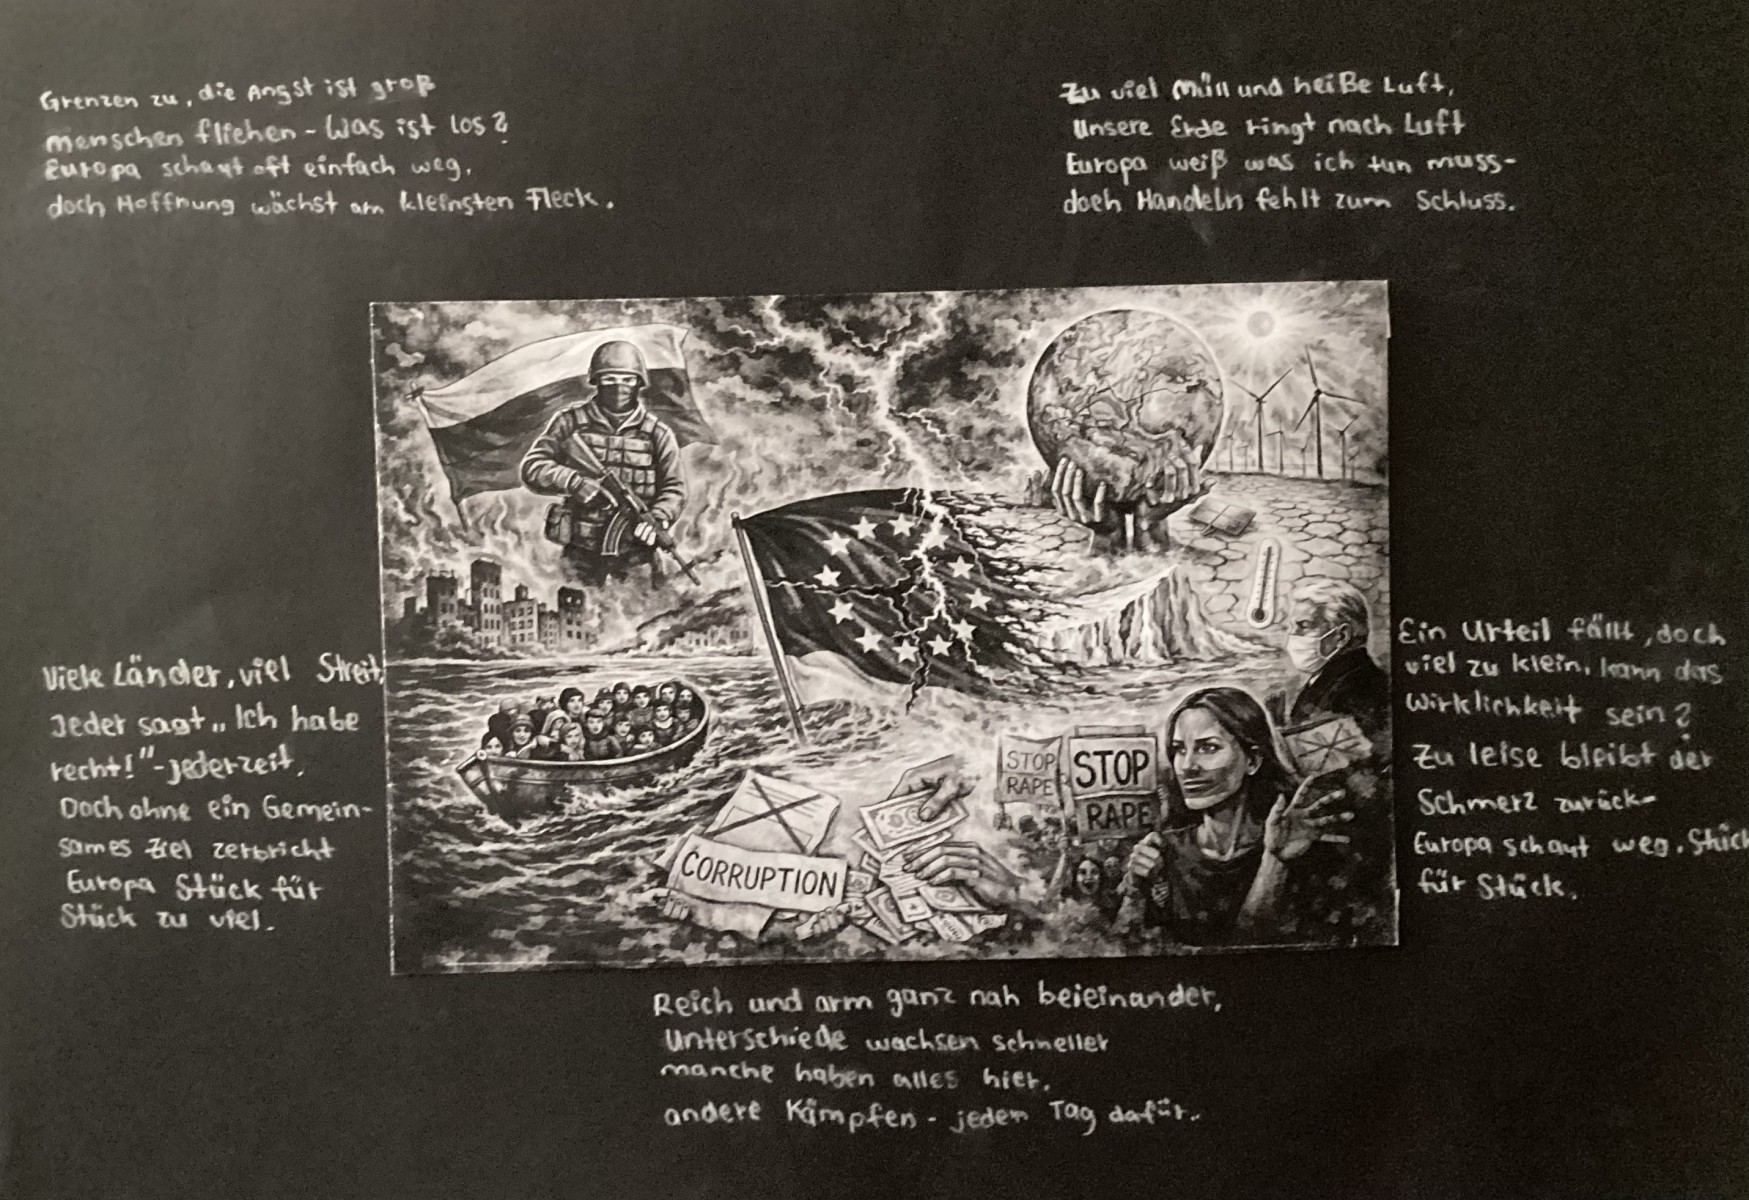 Grenzen zu, die Angst ist groß
menschen fliehen - Was ist los?
Europa schaut oft einfach weg,
doch Hoffnung wächst am kleinsten Fleck.
Zu viel Müll und heiße Luft,
Unsere Erde ringt nach Luft
Europa weiß was ich tun muss-
doch Handeln fehlt zum Schluss.
Viele Länder, viel Streit,
Jeder sagt „Ich habe
recht!"-jederzeit.
Doch ohne ein Gemein-
sames Ziel zerbricht
Europa Stück für
Stück zu viel.
STOP
RAPE
STOP
RAPE
CORRUPTION
Ein Urteil fällt, doch
viel zu klein, kann das
Wirklichkeit sein?
Zu leise bleibt der
Schmerz zurück-
Europa schaut weg, Stück
für Stück.
Reich und arm ganz nah beieinander,
Unterschiede wachsen schneller
manche haben alles hier,
andere Kämpfen - jeden Tag dafür.